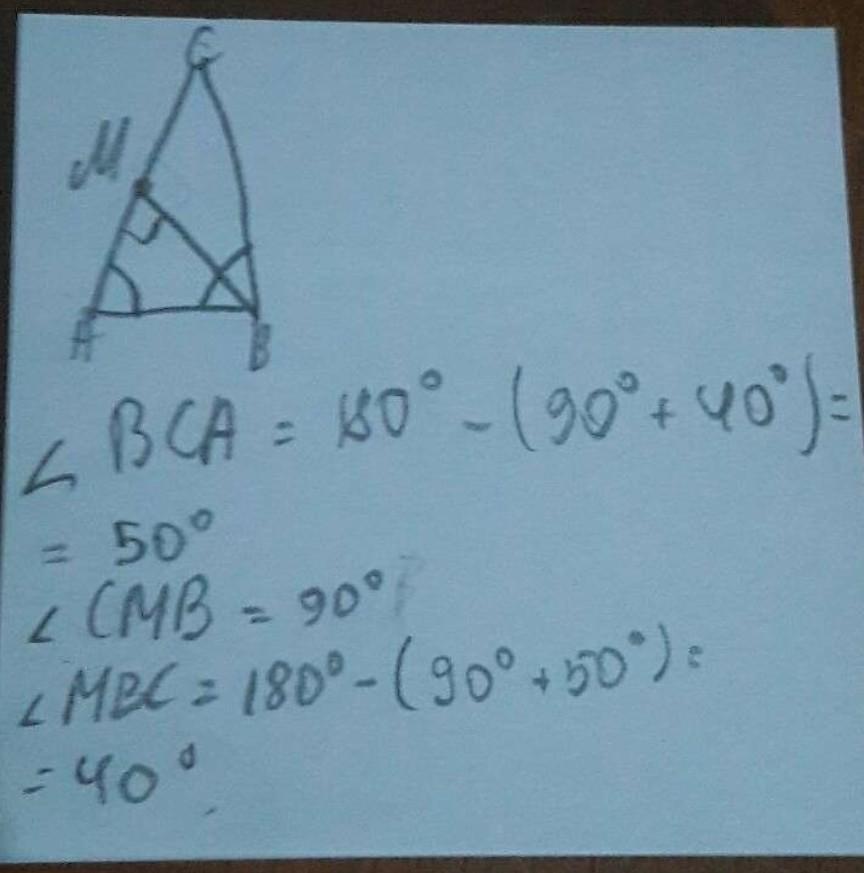 C
M
A
B
∠ BCA = 180° - (90° + 40°) =
= 50°
∠ CMB = 90°
∠ MBC = 180° - (90° + 50°) =
= 40°